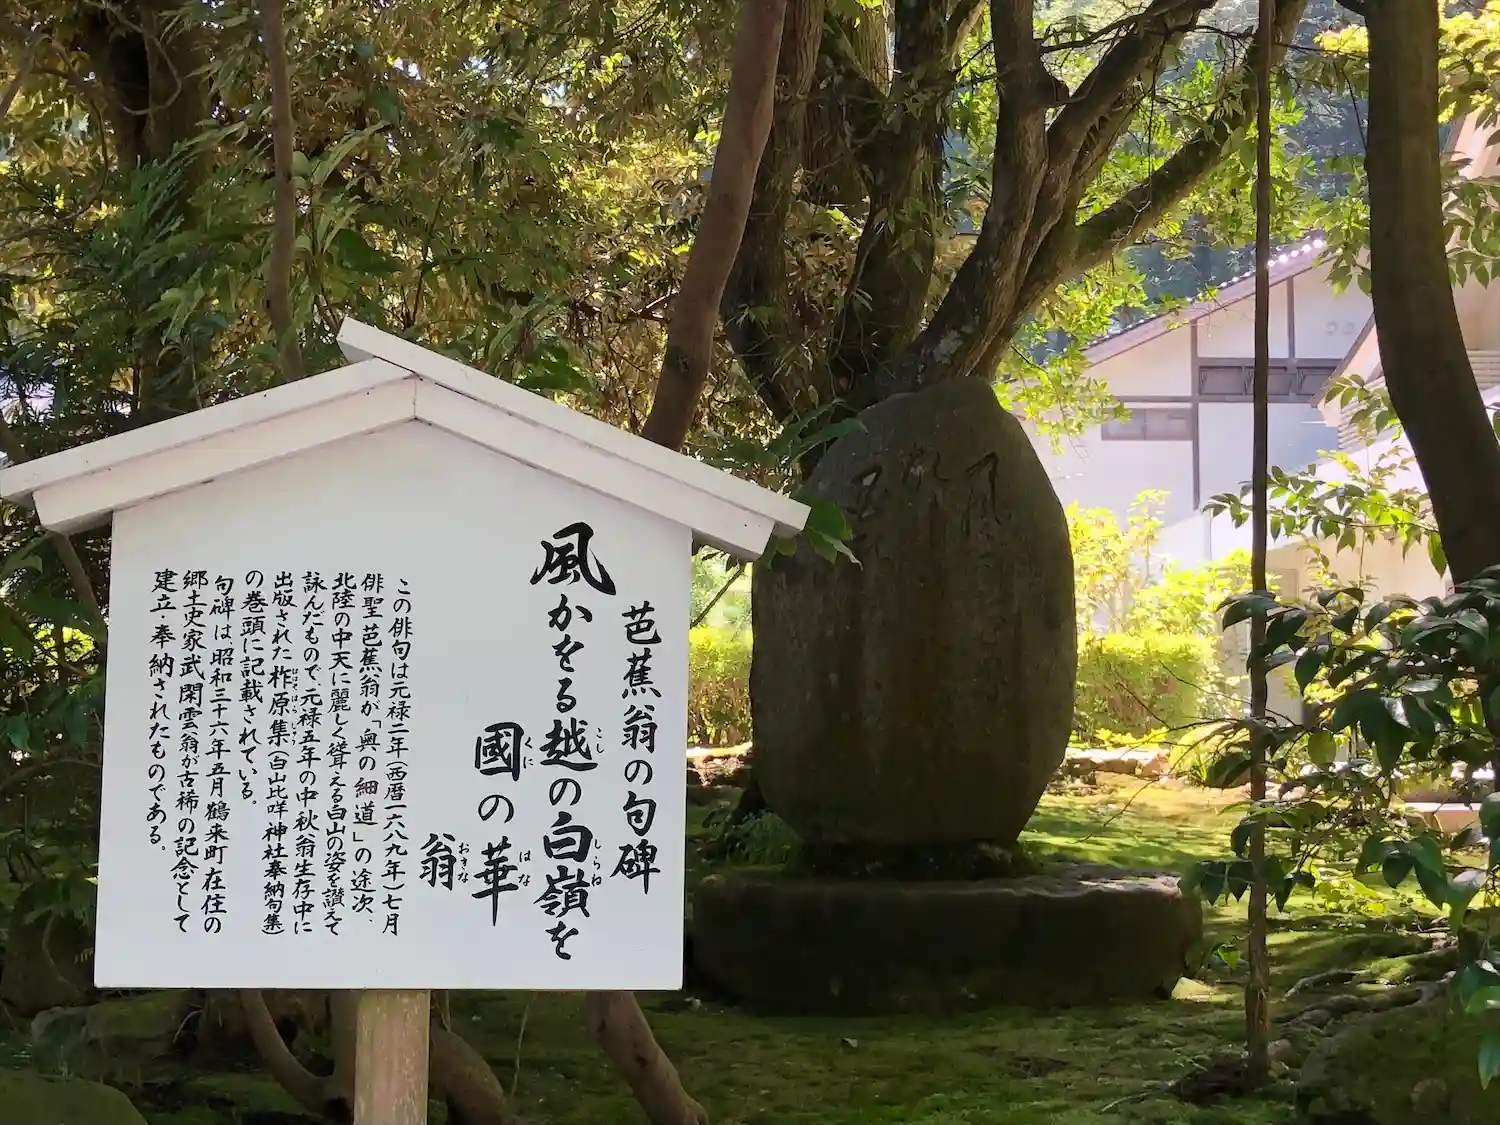 芭蕉翁の句碑
風かをる越の白嶺を
こし
しらね
國の華
くに
はな
翁
おきな
この俳句は元禄二年(西暦一六八九年)七月
俳聖芭蕉翁が「奥の細道」の途次、
北陸の中天に麗しく聳える白山の姿を讃えて
詠んだもので、元禄五年の中秋翁生存中に
出版された柞原集(白山比咩神社奉納句集)
ははそはらしゅう
の巻頭に記載されている。
句碑は昭和三十六年五月鶴来町在住の
郷土史家武閑雲翁が古稀の記念として
建立・奉納されたものである。